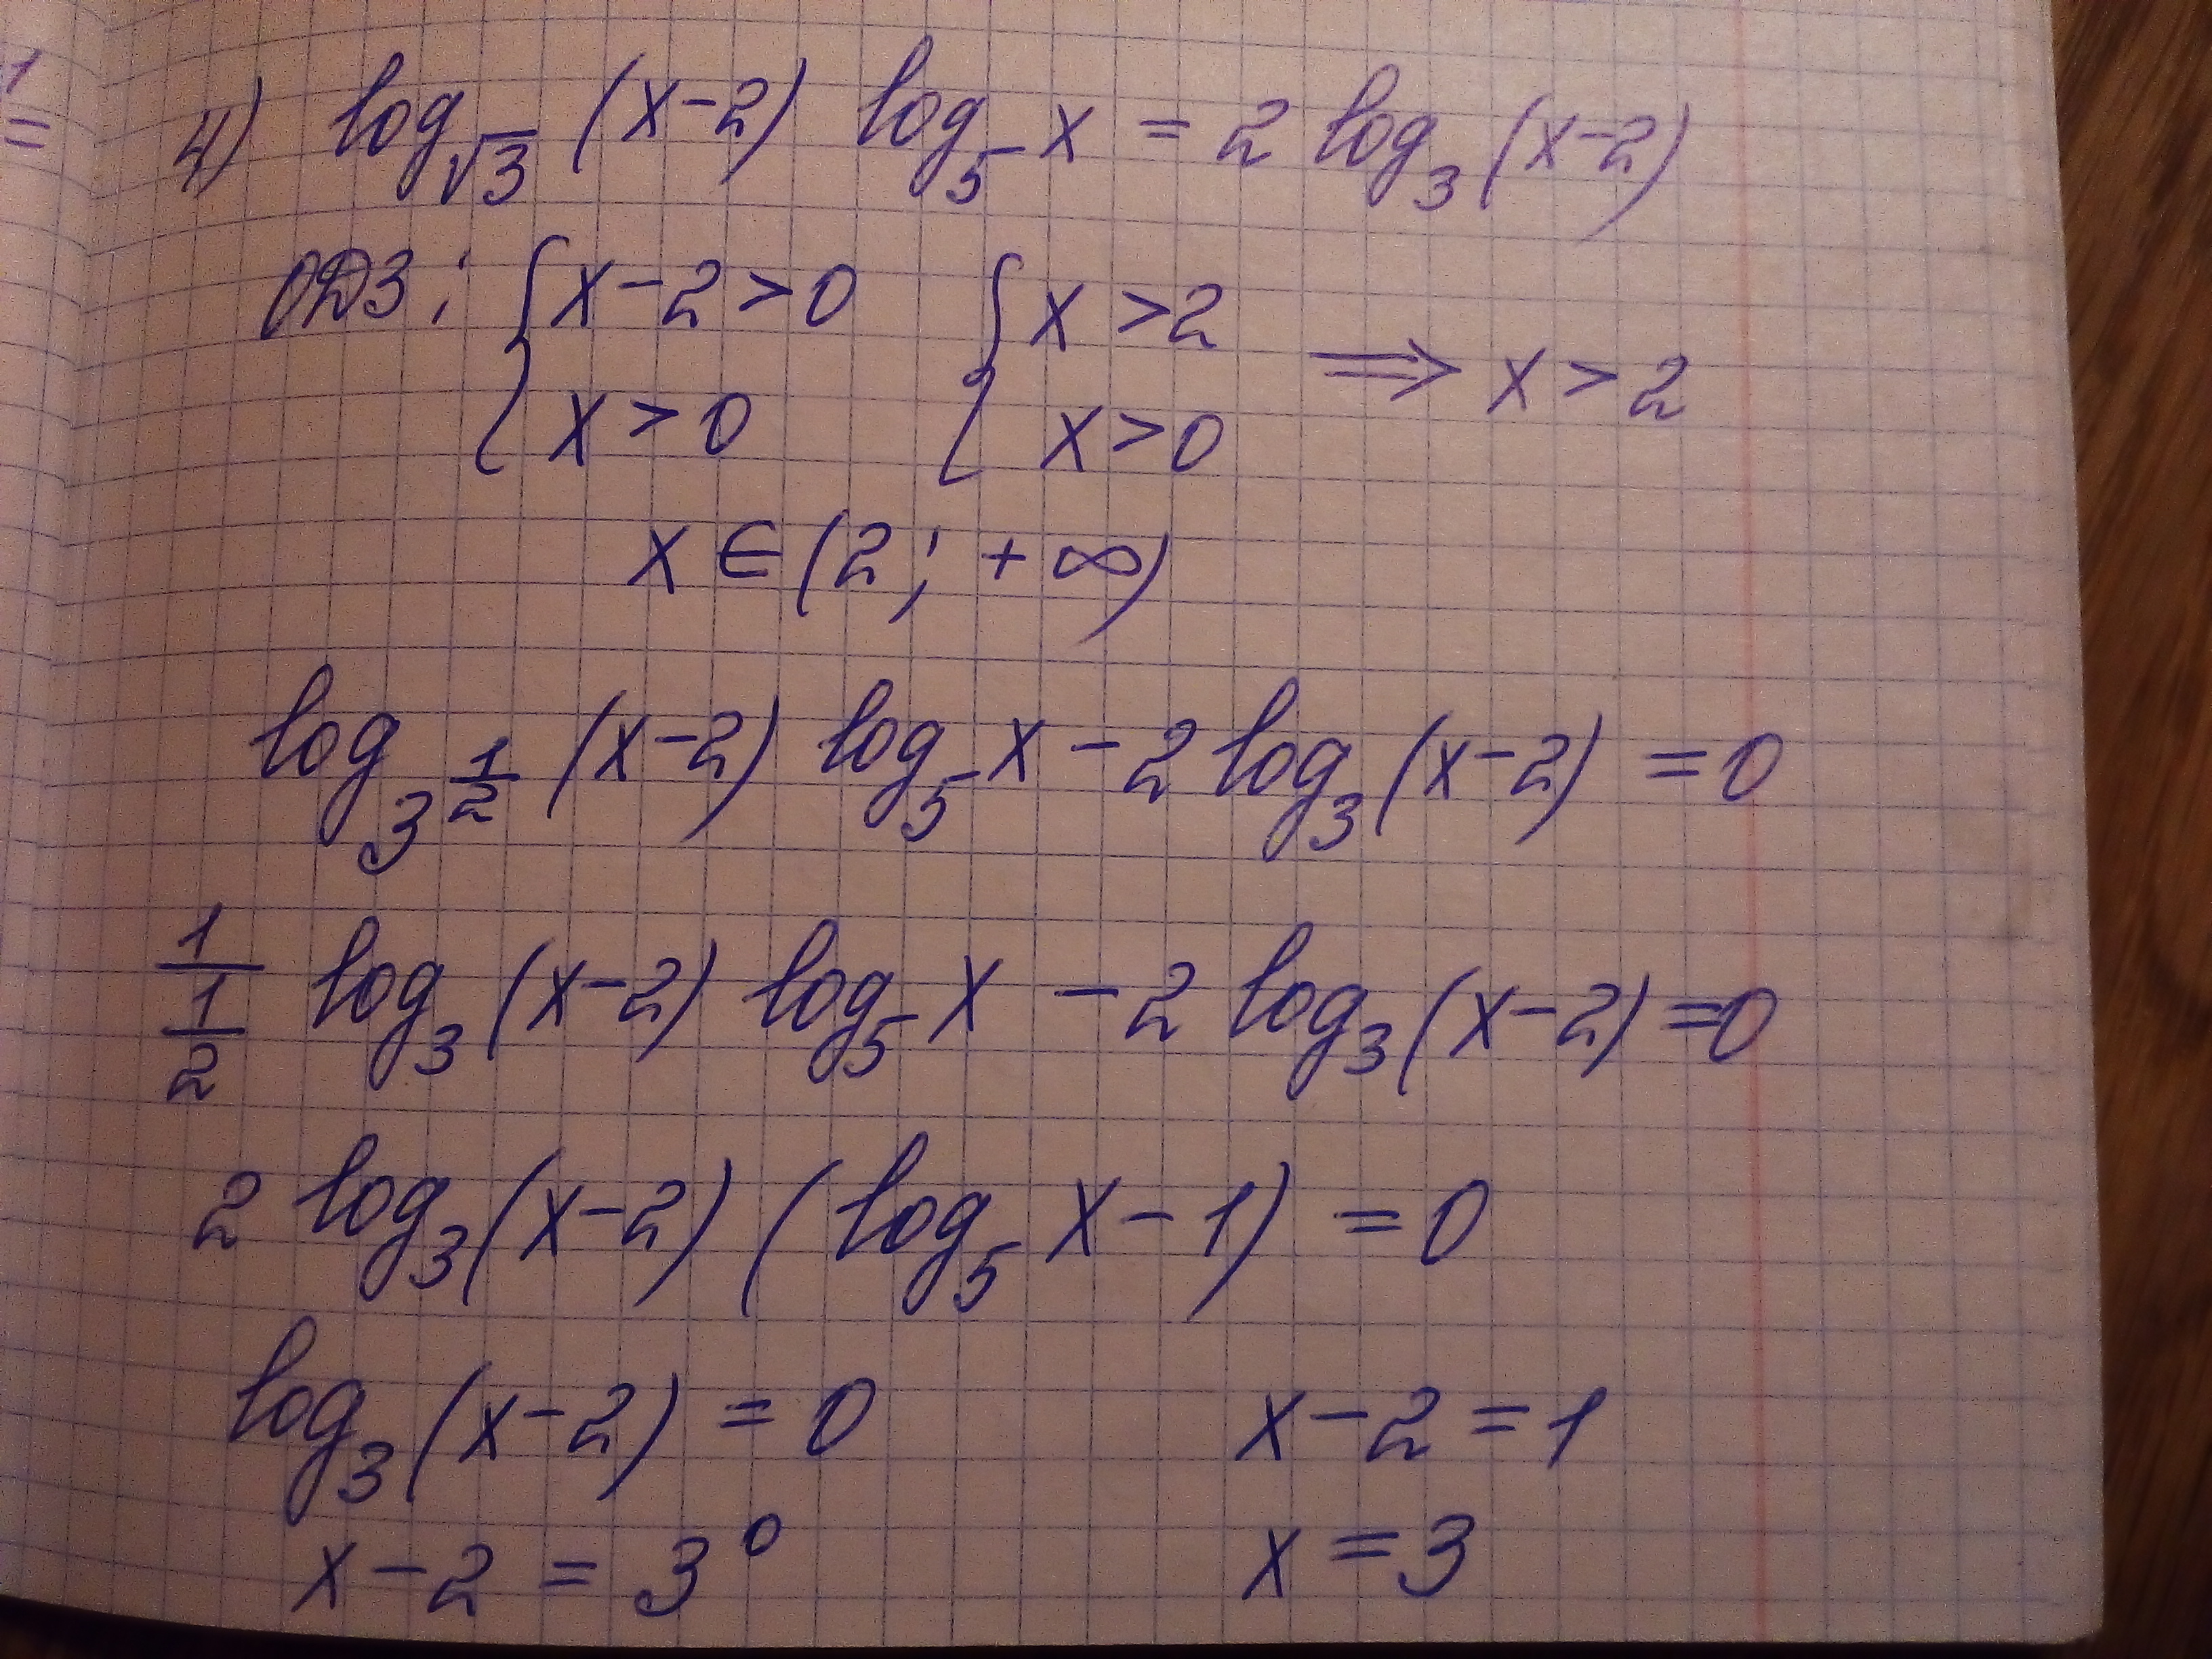 1
=
4) log_√3 (x-2) log_5 x = 2 log_3 (x-2)
ОДЗ: { x-2>0 { x>2
x>0 x>0 ⟹ x>2
x∈(2; +∞)
log_3^(1/2) (x-2) log_5 x - 2 log_3 (x-2) = 0
1/(1/2) log_3 (x-2) log_5 x - 2 log_3 (x-2) = 0
2 log_3 (x-2) (log_5 x - 1) = 0
log_3 (x-2) = 0 x-2 = 1
x-2 = 3^0 x = 3